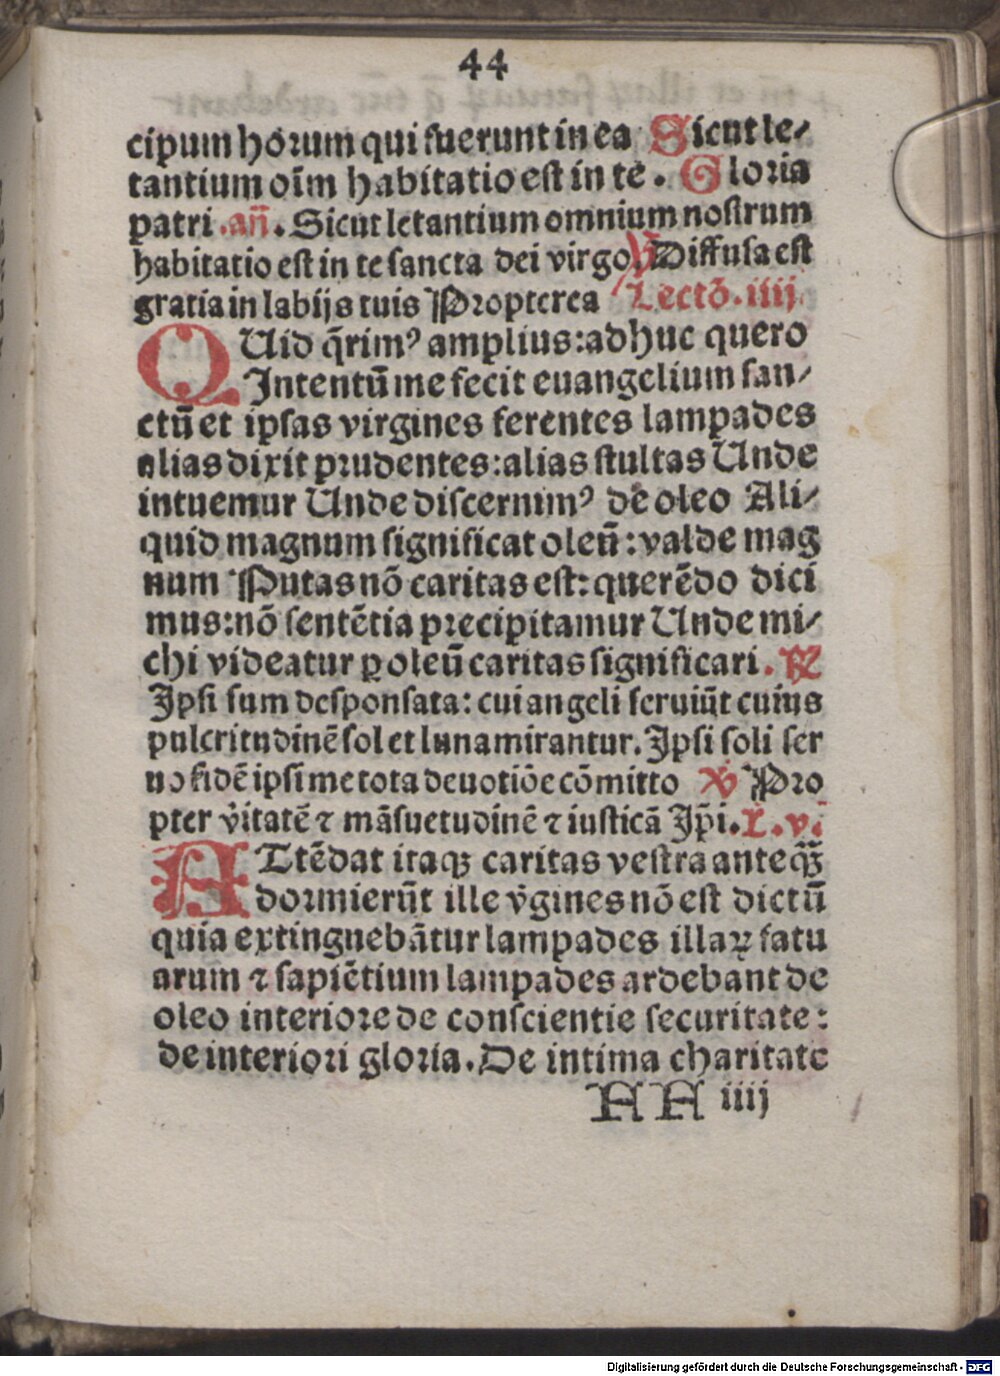 44
cipum horum qui fuerunt in ea Sicut le⸗
tantium oīm habitatio est in te . Gloria
patri .an̄. Sicut letantium omnium nostrum
habitatio est in te sancta dei virgo. ℣ Diffusa est
gratia in labijs tuis Propterea Lectō. iiij.
QUid q̄rimꝰ amplius: adhuc quero
Intentū me fecit euangelium san⸗
ctū et ipsas virgines ferentes lampades
alias dixit prudentes: alias stultas Unde
intuemur Unde discernimꝰ de oleo Ali⸗
quid magnum significat oleū: valde mag
num Putas nō caritas est: querēdo dici
mus: nō sentētia precipitamur Unde mi⸗
chi videatur ꝑ oleū caritas significari. ℟
Ipsi sum desponsata: cui angeli seruiūt cuius
pulcritudinē sol et luna mirantur. Ipsi soli ser
uo fidē ipsi me tota deuotiōe cōmitto ℣ Pro
pter v̄itatē ⁊ māsuetudinē ⁊ iusticā Ip̄i. L. v.
ATtēdat itaqꝫ caritas vestra anteqꝫ̄
dormierūt ille v̄gines nō est dictū
quia extinguebātur lampades illaꝝ fatu
arum ⁊ sapiētium lampades ardebant de
oleo interiore de conscientie securitate:
de interiori gloria. De intima charitate
AA iiij
Digitalisierung gefördert durch die Deutsche Forschungsgemeinschaft - DFG